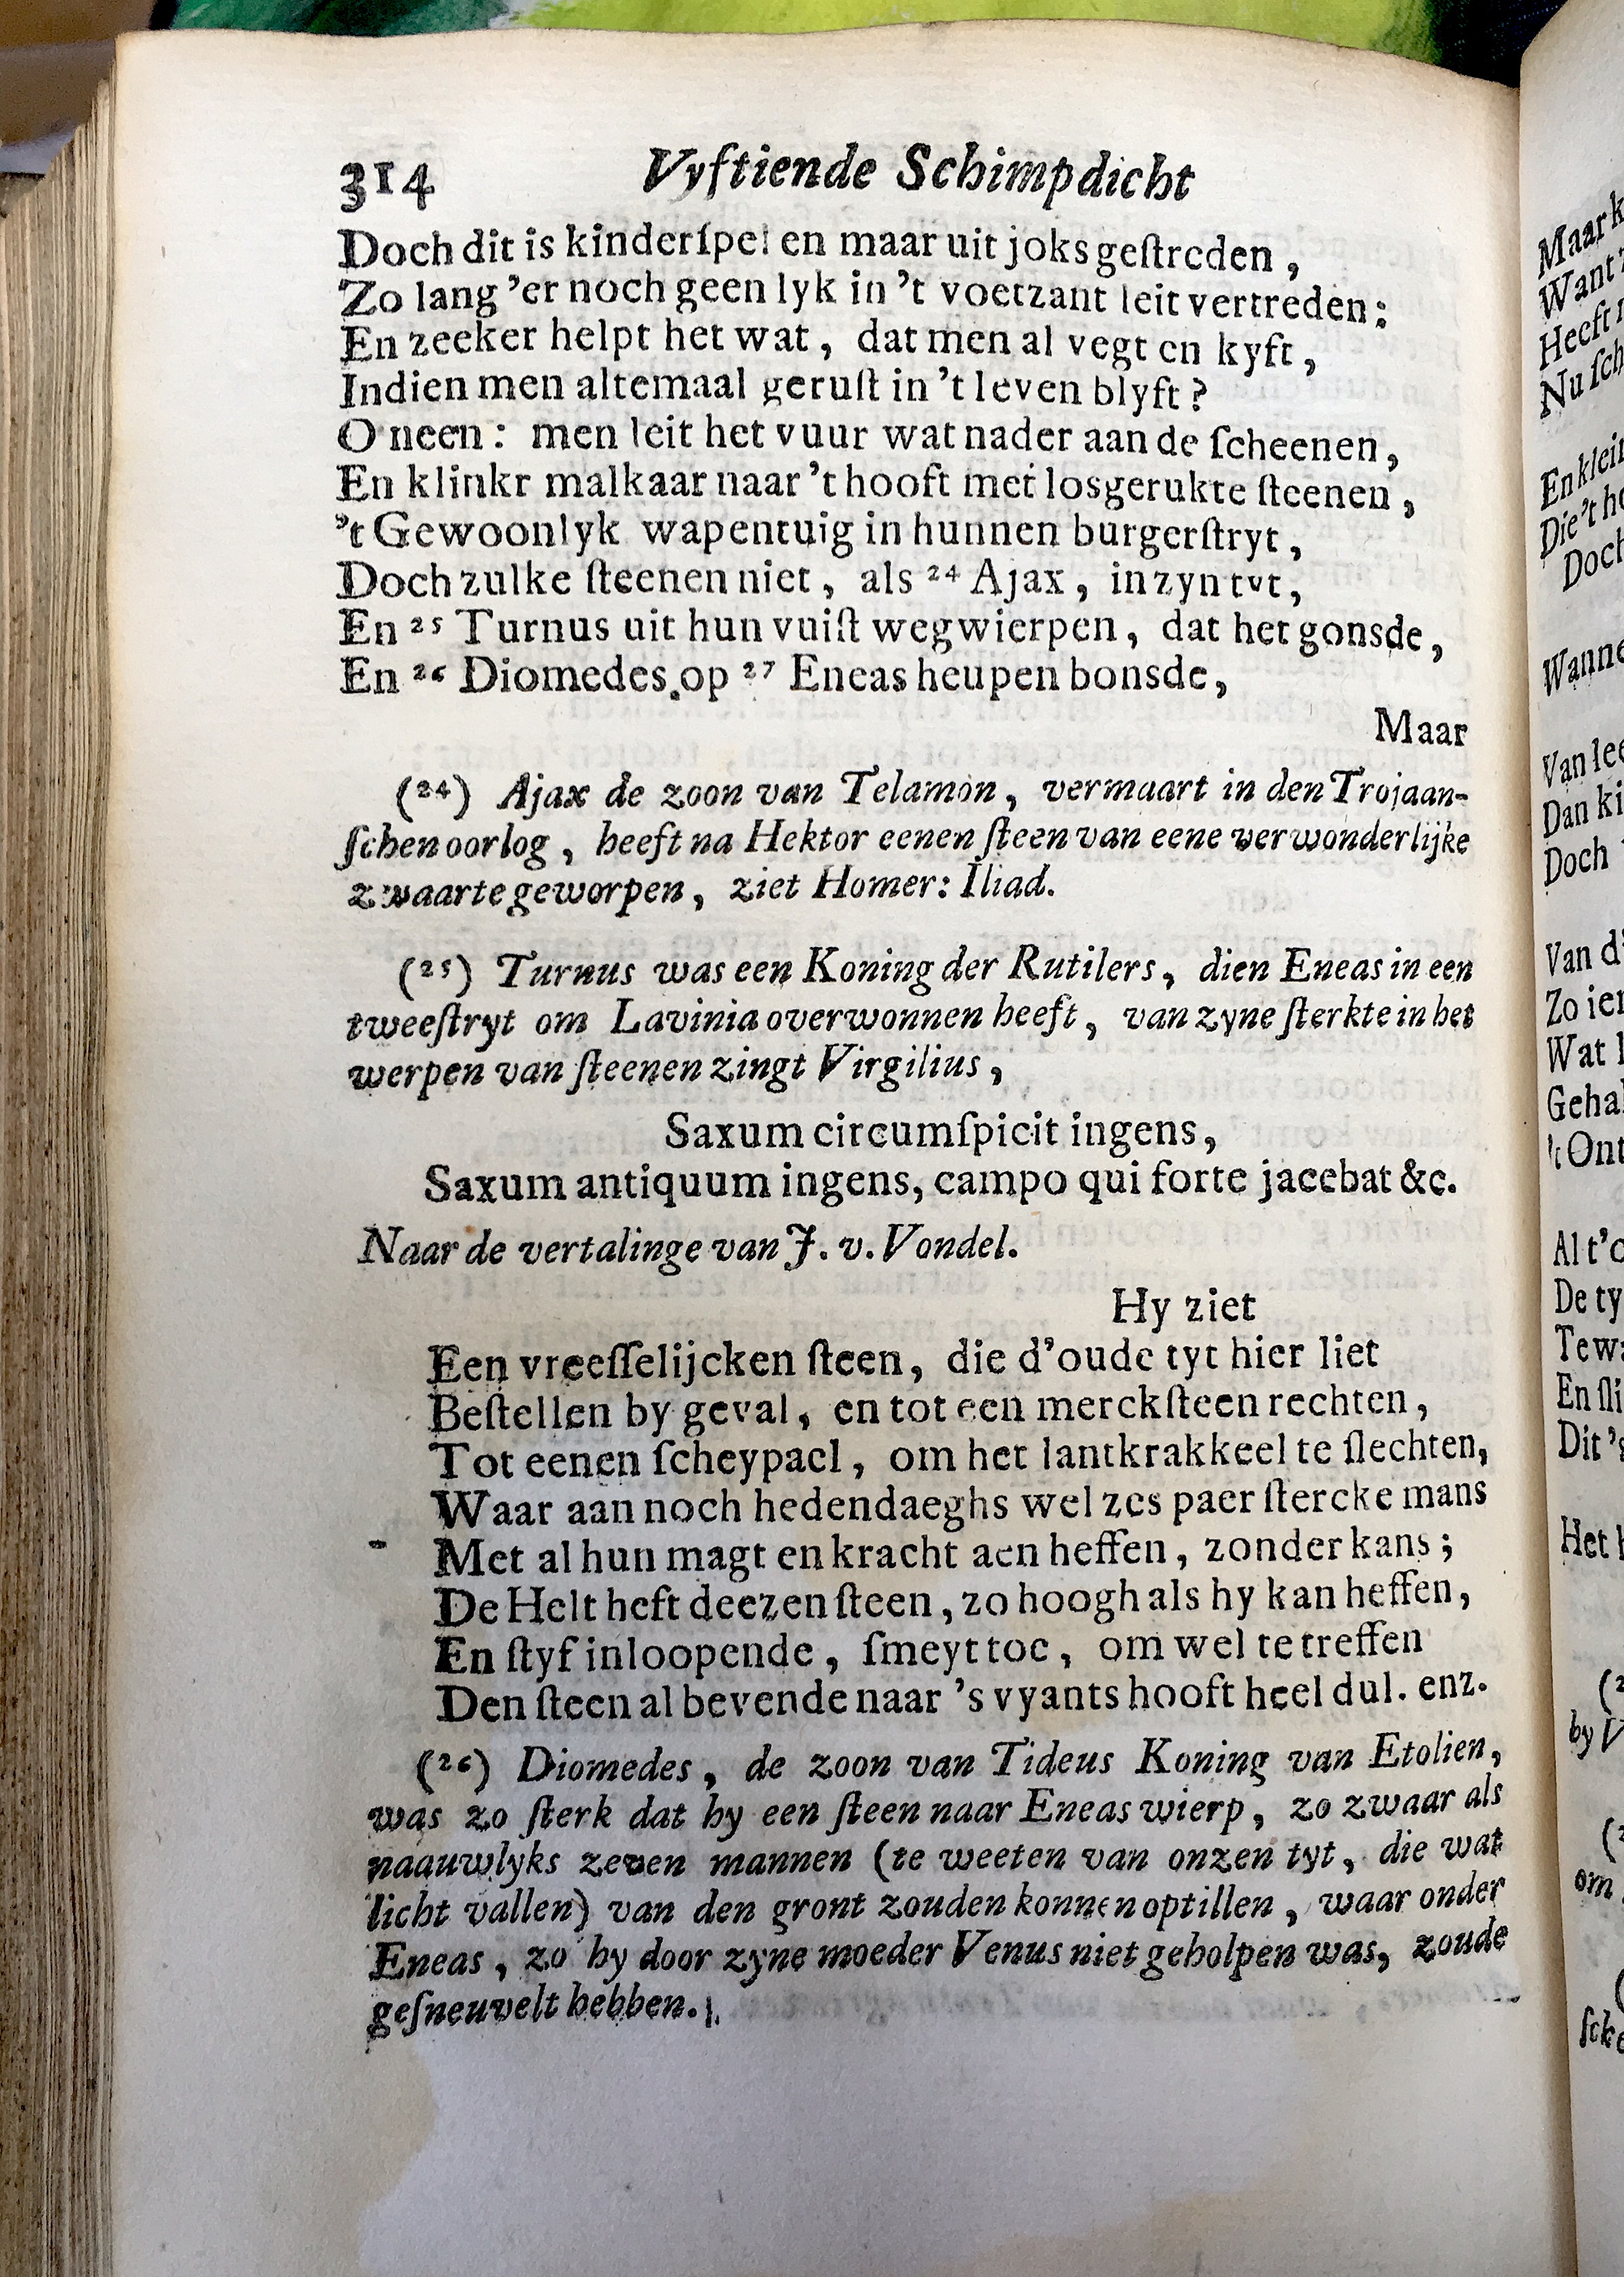 314 Vyftiende Schimpdicht
Doch dit is kinderſpel en maar uit joks geſtreden,
Zo lang 'er noch geen lyk in 't voetzant leit vertreden:
En zeeker helpt het wat, dat men al vegt en kyft,
Indien men altemaal geruſt in 't leven blyft?
O neen: men leit het vuur wat nader aan de ſcheenen,
En klinkt malkaar naar 't hooft met losgerukte ſteenen,
't Gewoonlyk wapentuig in hunnen burgerſtryt,
Doch zulke ſteenen niet, als ²⁴ Ajax, in zyn tyt,
En ²⁵ Turnus uit hun vuiſt wegwierpen, dat het gonsde,
En ²⁶ Diomedes op ²⁷ Eneas heupen bonsde,
Maar
(²⁴) Ajax de zoon van Telamon, vermaart in den Trojaan-
ſchen oorlog, heeft na Hektor eenen ſteen van eene verwonderlijke
zwaarte geworpen, ziet Homer: Iliad.
(²⁵) Turnus was een Koning der Rutilers, dien Eneas in een
tweeſtryt om Lavinia overwonnen heeft, van zyne ſterkte in het
werpen van ſteenen zingt Virgilius,
Saxum circumſpicit ingens,
Saxum antiquum ingens, campo qui forte jacebat &c.
Naar de vertalinge van J. v. Vondel.
Hy ziet
Een vreeſſelijcken ſteen, die d'oude tyt hier liet
Beſtellen by geval, en tot een merckſteen rechten,
Tot eenen ſcheypael, om het lantkrakkeel te ſlechten,
Waar aan noch hedendaeghs wel zes paer ſtercke mans
Met al hun magt en kracht aen heffen, zonder kans;
De Helt heft deezen ſteen, zo hoogh als hy kan heffen,
En ſtyf inloopende, ſmeyt toe, om wel te treffen
Den ſteen al bevende naar 's vyants hooft heel dul. enz.
(²⁶) Diomedes, de zoon van Tideus Koning van Etolien,
was zo ſterk dat hy een ſteen naar Eneas wierp, zo zwaar als
naauwlyks zeven mannen (te weeten van onzen tyt, die wat
licht vallen) van den gront zouden konnen optillen, waar onder
Eneas, zo hy door zyne moeder Venus niet geholpen was, zoude
geſneuvelt hebben.